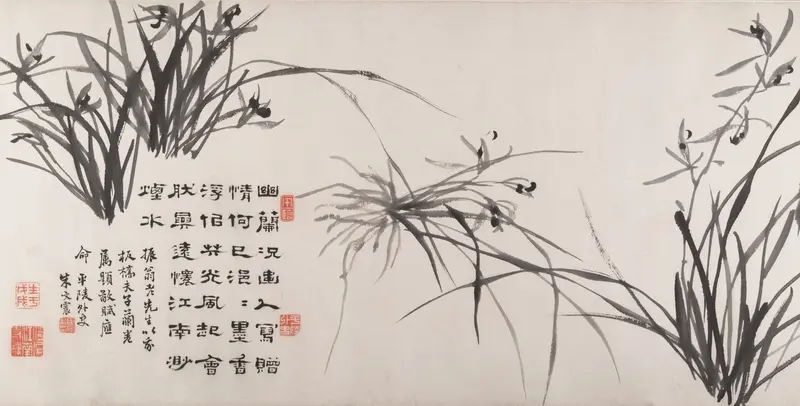 幽蘭況逸人寫贈
情何已浥〻墨香
浮佀共光風起會
遠懷江南渺
煙水
振翁老先生以家
板橋夫子蘭卷
属題敬賦應
命 平陵外史
朱文震